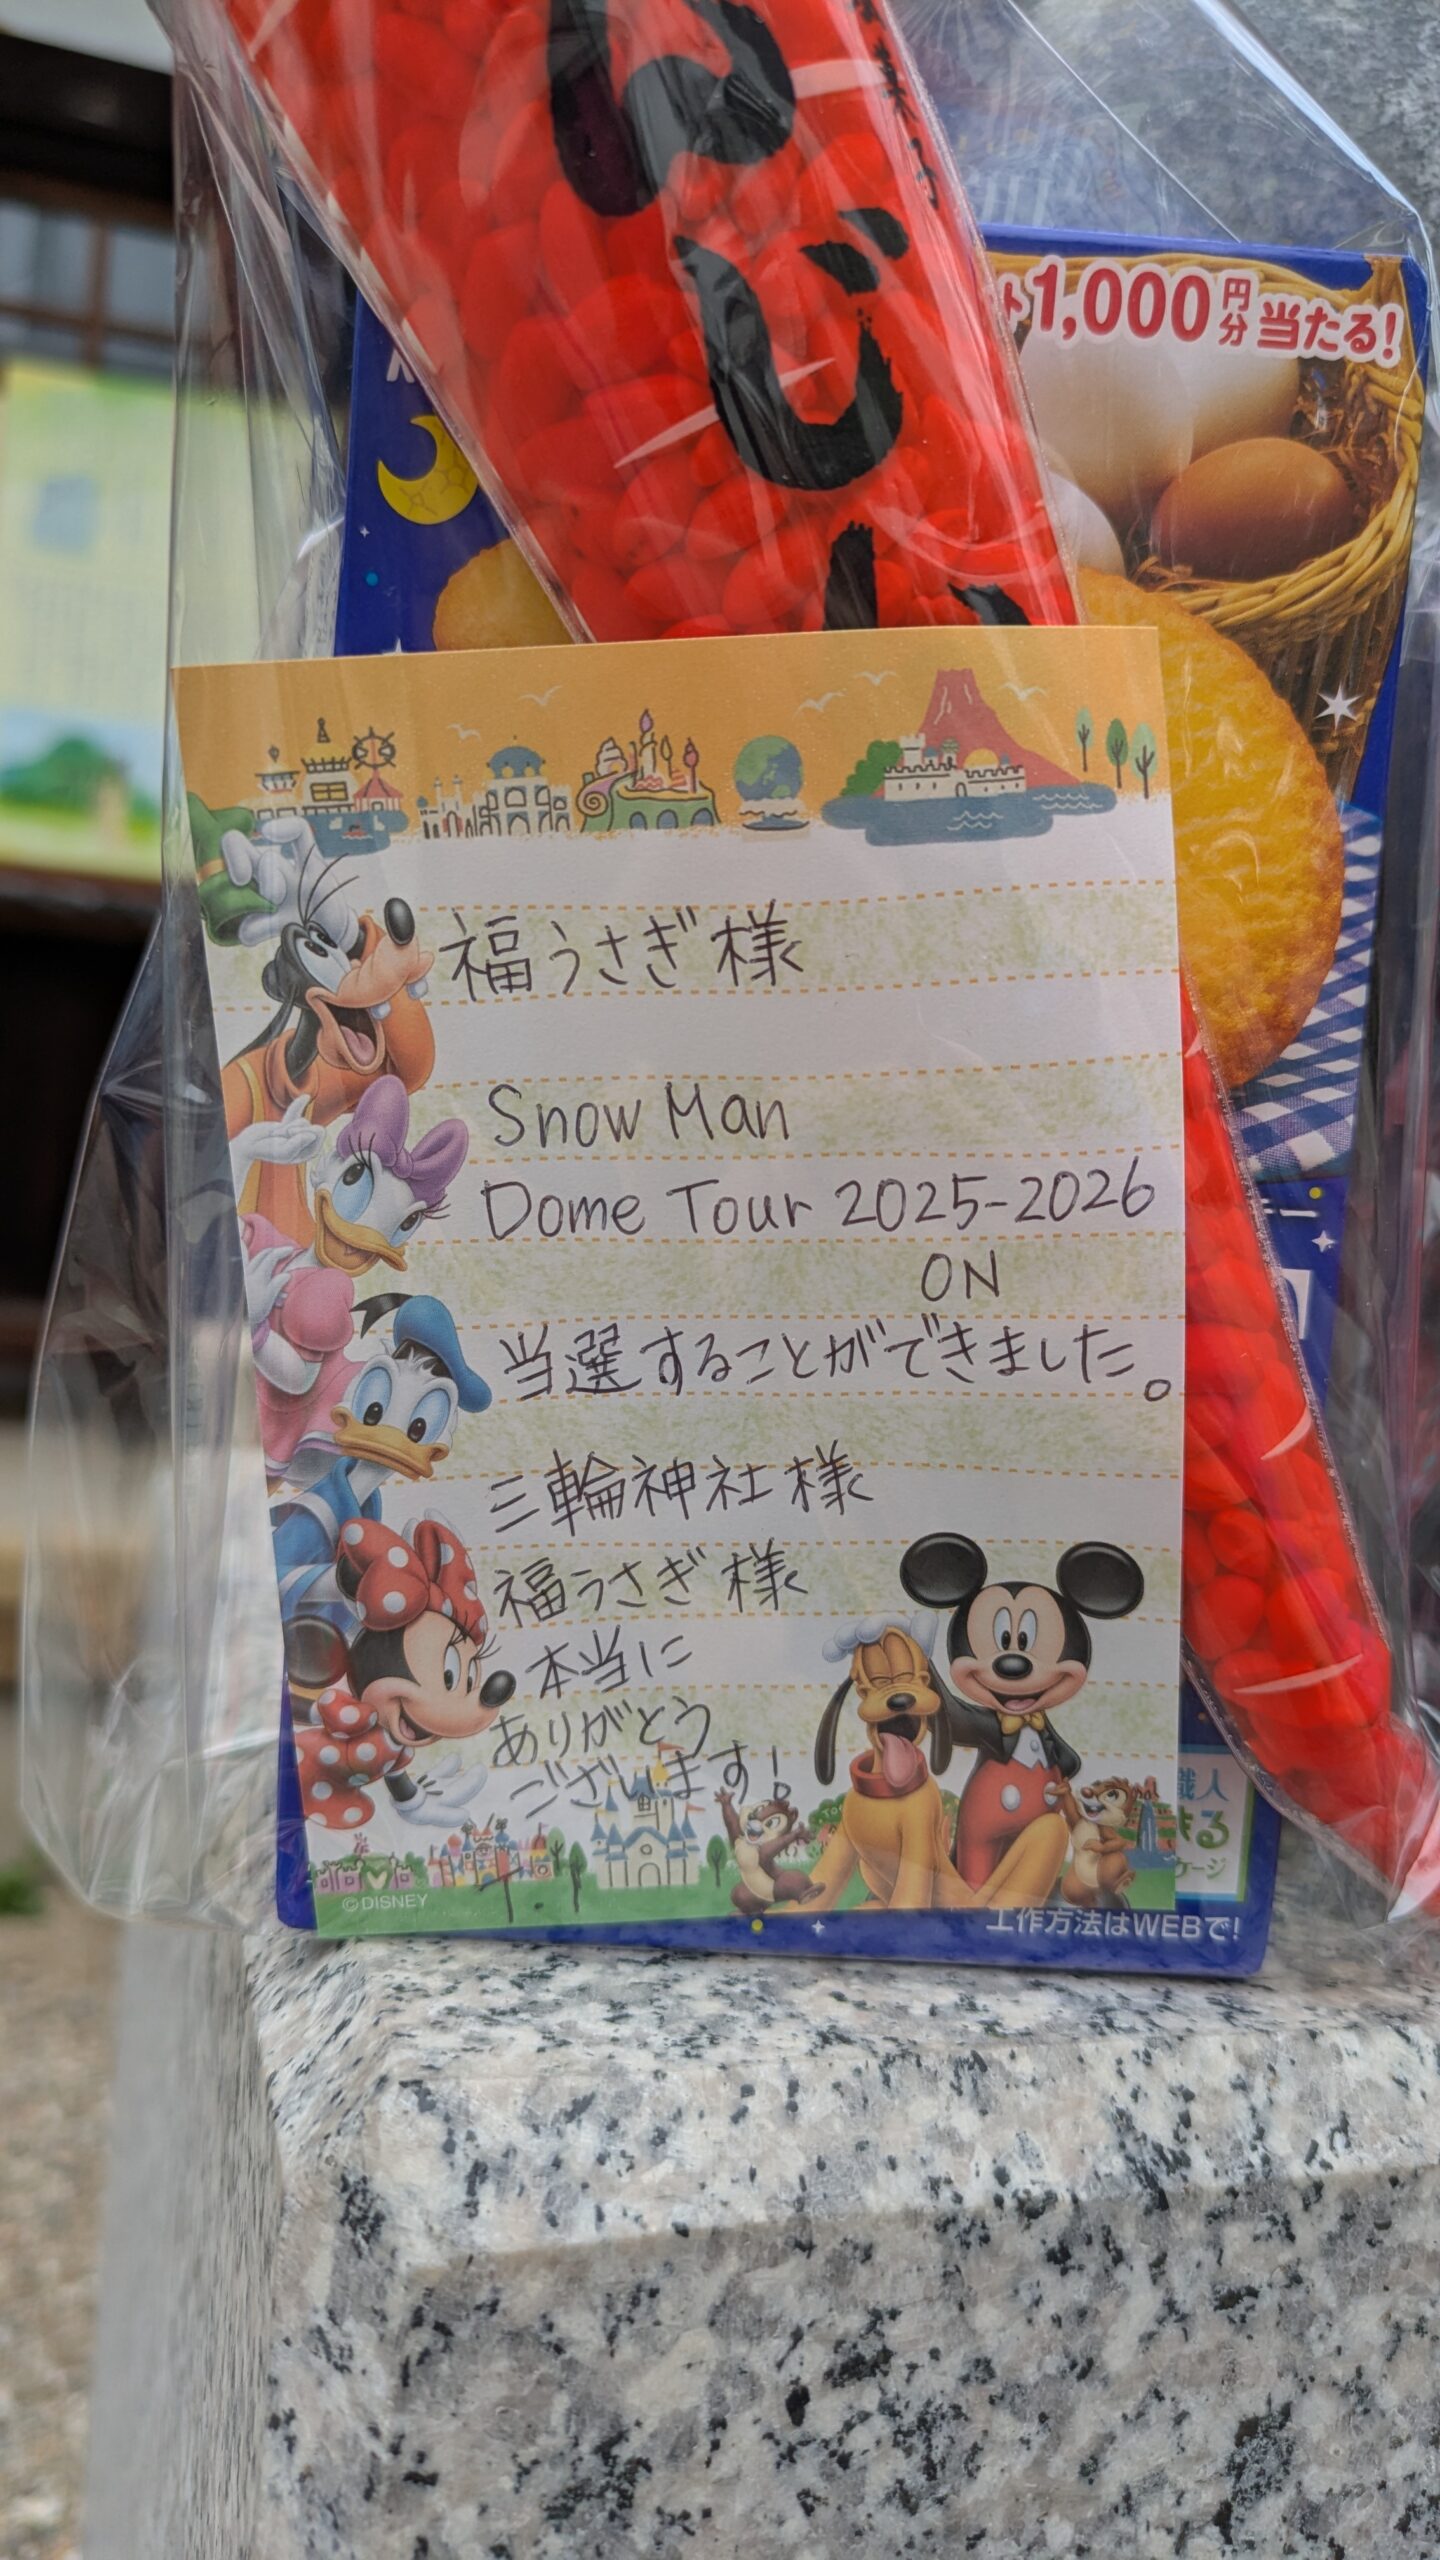 1,000円分当たる!
福うさぎ様
Snow Man
Dome Tour 2025-2026
ON
当選することができました。
三輪神社様
福うさぎ様
本当に
ありがとう
ございます!
©DISNEY
職人
まる
工作方法はWEBで!